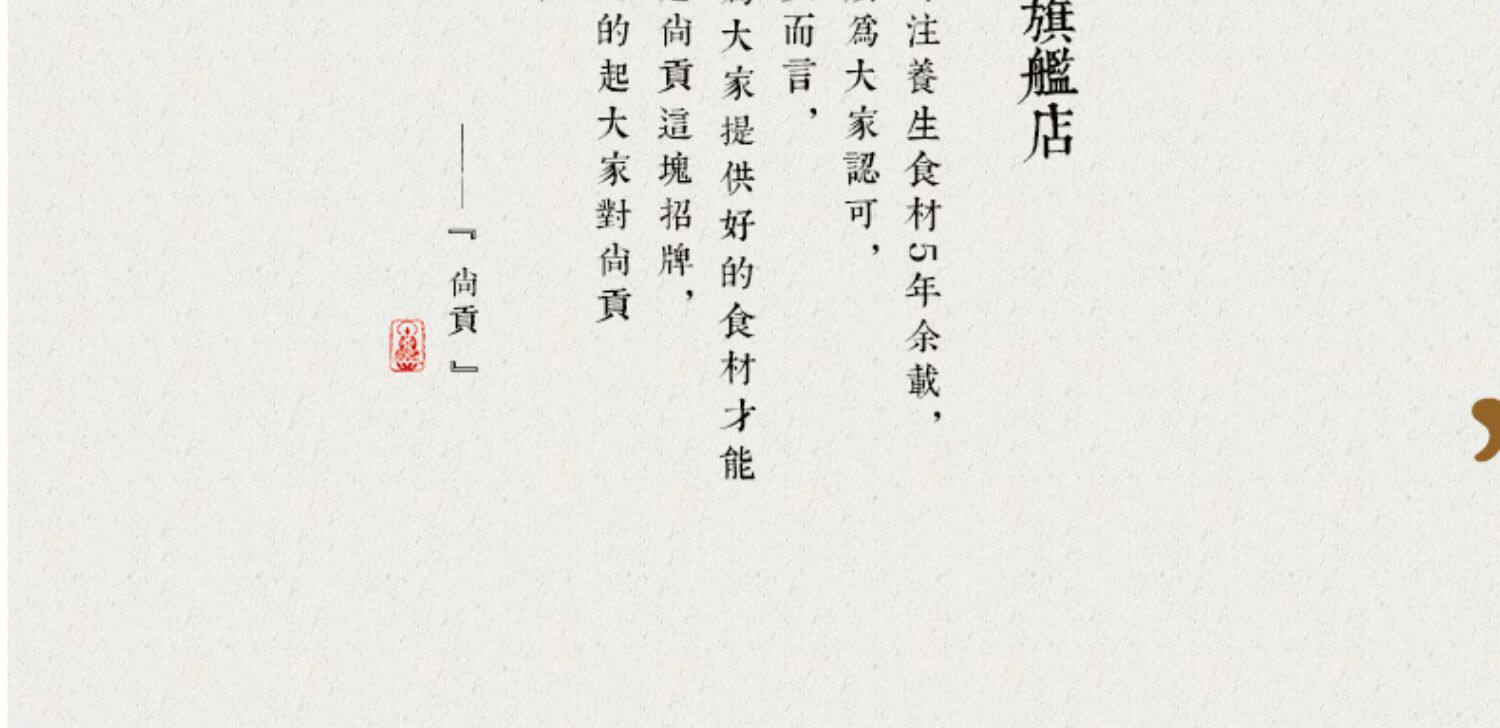 旗艦店
注養生食材5年余載，
爲大家認可，
而言，
大家提供好的食材才能
尙貢這塊招牌，
的起大家對尙貢
——『尙貢』